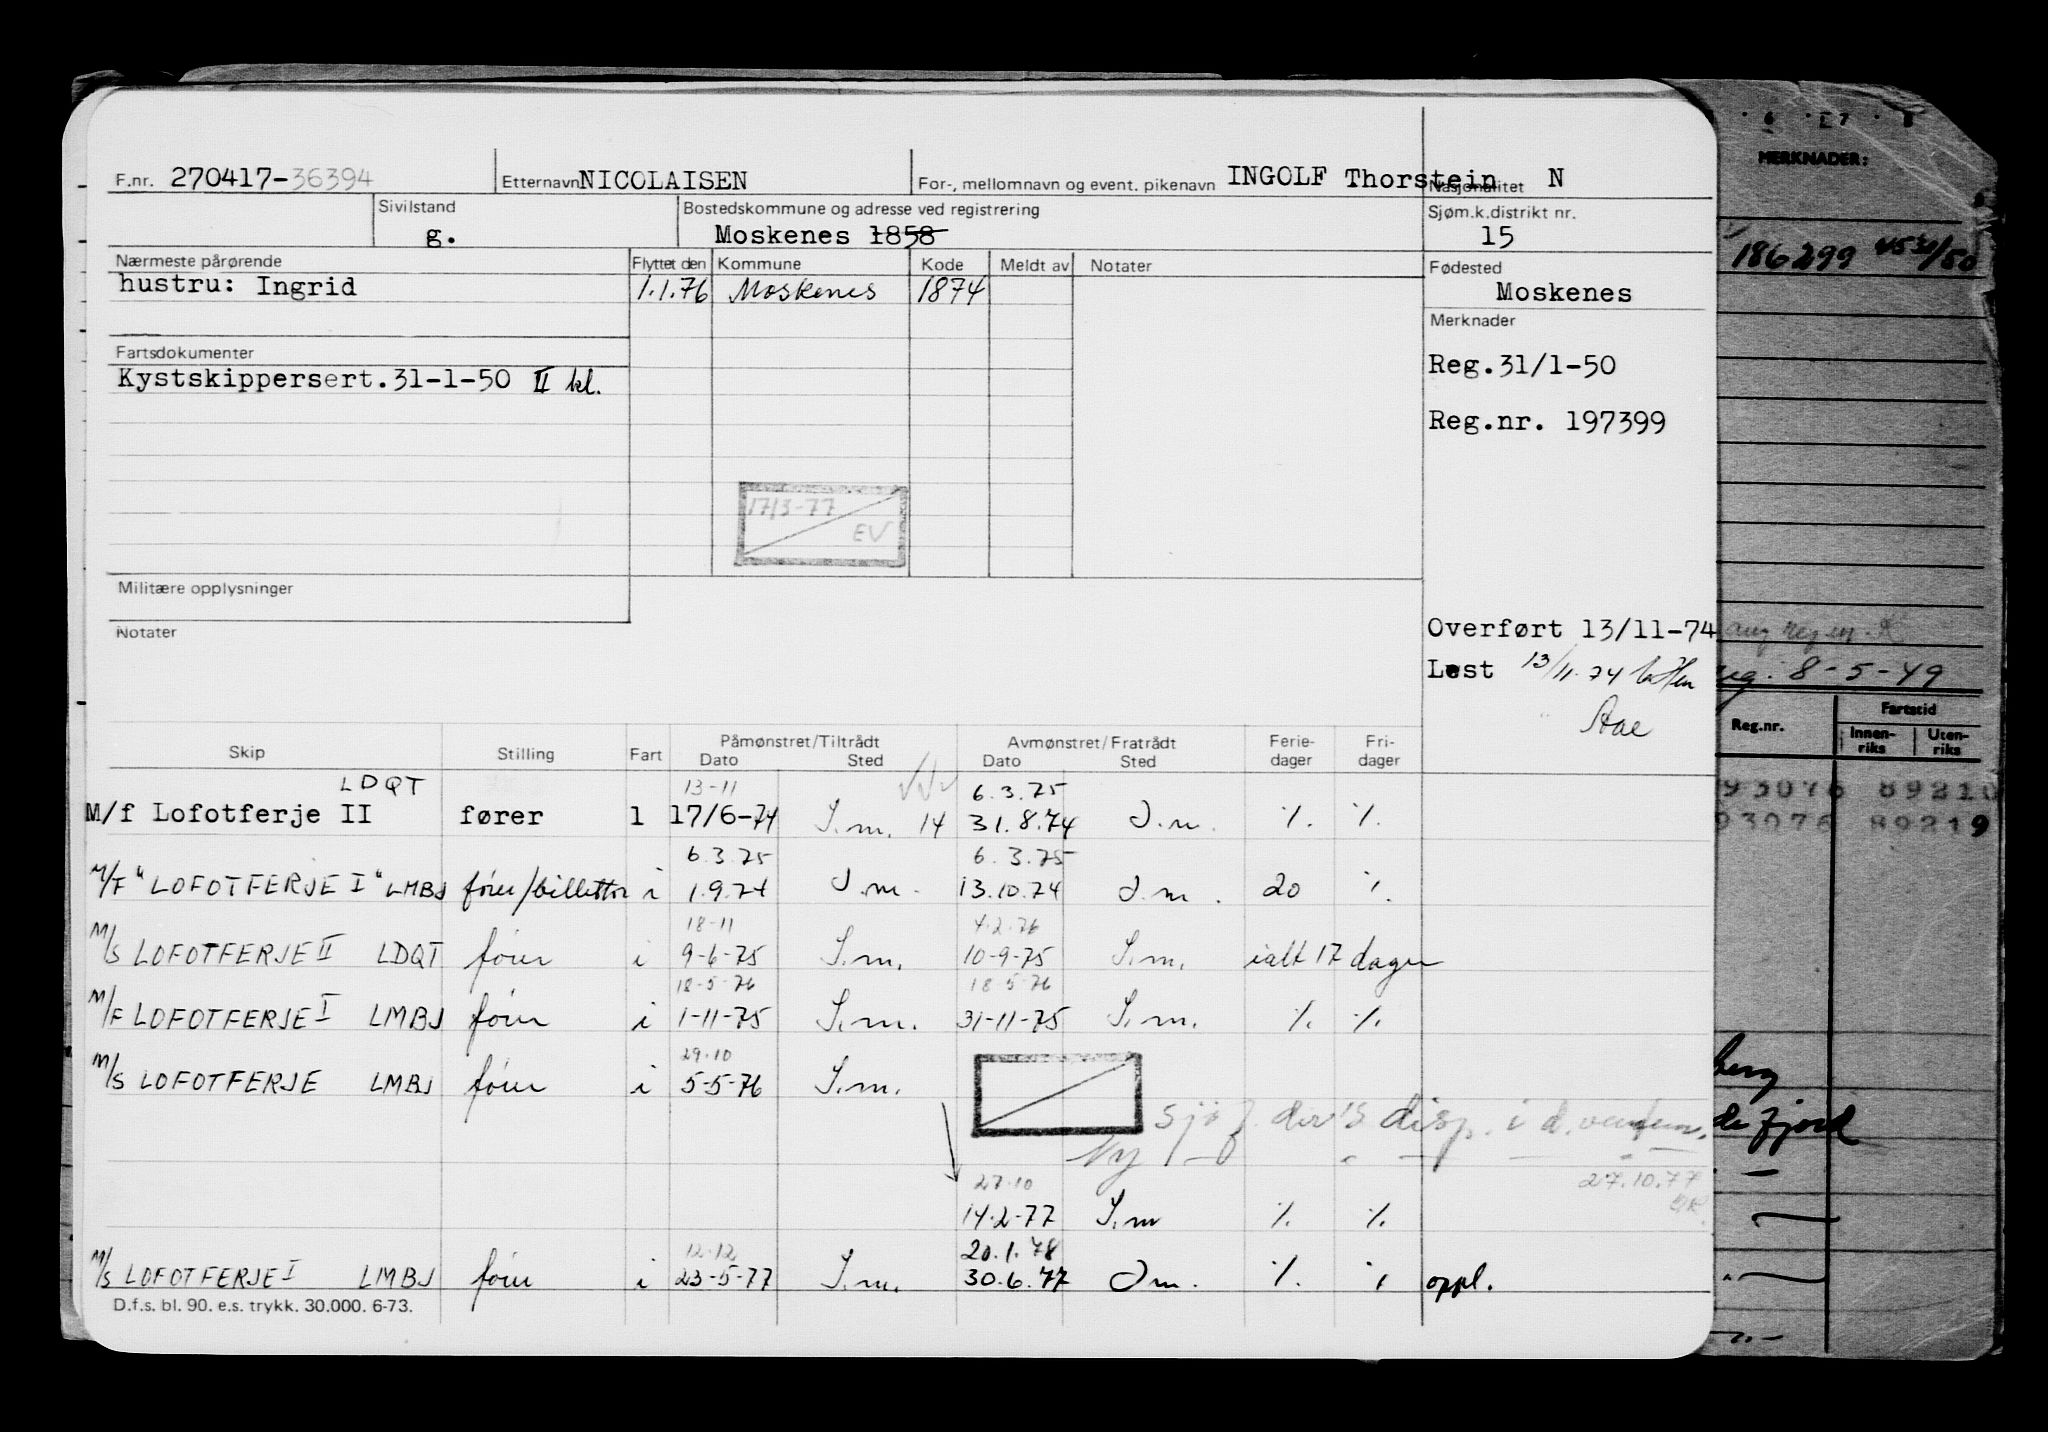 F.nr. 270417-36394 Etternavn NICOLAISEN For-, mellomnavn og event. pikenavn INGOLF Thorstein Nasjonalitet N
Sivilstand g. Bostedskommune og adresse ved registrering Moskenes 1858 Sjøm.k.distrikt nr. 15
Nærmeste pårørende Flyttet den Kommune Kode Meldt av Notater Fødested
hustru: Ingrid 1.1.76 Moskenes 1874 Moskenes
Merknader
Fartsdokumenter Reg.31/1-50
Kystskippersert.31-1-50 II kl.
Reg.nr. 197399
17/3-77
EV
Militære opplysninger
Notater
Overført 13/11-74
Lest 13/11.74
Aae
Skip Stilling Fart Påmønstret/Tiltrådt Dato Sted Avmønstret/Fratrådt Dato Sted Ferie-dager Fri-dager
LDQT 13-11 6.3.75
M/f Lofotferje II fører 1 17/6-74 S.m. 14 31.8.74 S.m. ./. ./.
6.3.75 6.3.75
M/F "LOFOTFERJE I" LMBJ fører/billettør i 1.9.74 S.m. 13.10.74 S.m. 20 ./.
18-11 4.2.76
M/S LOFOTFERJE II LDQT fører i 9-6-75 S.m. 10-9-75 S.m. ialt 17 dager
18-5-76 18-5-76
M/F LOFOTFERJE I LMBJ fører i 1-11-75 S.m. 31-11-75 S.m. ./. ./.
29.10
M/S LOFOTFERJE LMBJ fører i 5-5-76 S.m.
sjø f. der's disp. i d.
Ny
27.10.77
27.10
14.2-77 S.m ./. ./.
12-12 20.1.78
M/S LOFOTFERJE I LMBJ fører i 23-5-77 S.m. 30.6.77 S.m. ./. ./. oppl.
D.f.s. bl. 90. e.s. trykk. 30.000. 6-73.
6 7 8
MERKNADER:
186299
8-5-49
Reg.nr. Fartstid
Innen-riks Uten-riks
93076 89210
93076 89219
berg
fjord